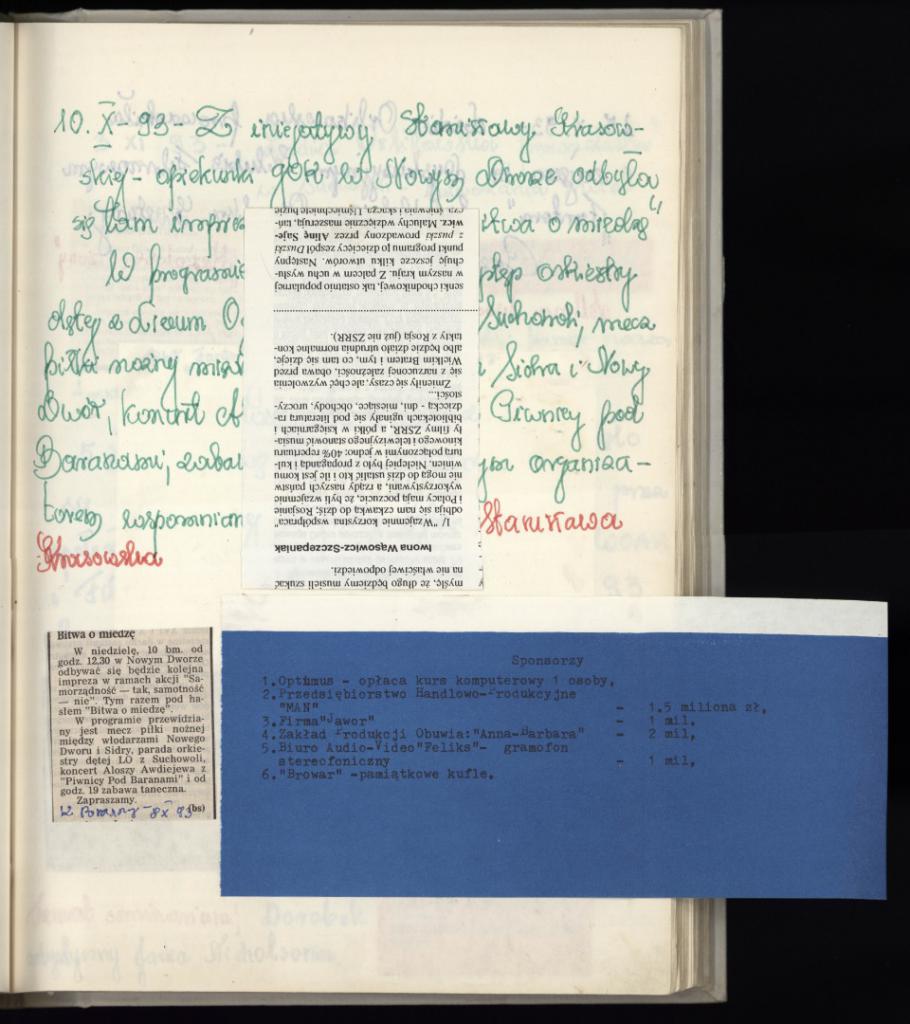 10. X - 93 - Z inicjatywy Stanisławy Krasow-
skiej - opiekunki GOK w Nowym Dworze odbyła
się tam impre itwa o miedzę"
W programie ystęp orkiestry
dętej z Liceum O Suchowoli, mecz
piłki nożnej mię i Sidra i Nowy
Dwór, koncert A Piwnicy pod
Baranami, zaba ym organiza-
torem wspomnian Stanisława
Krasowska
myślę, że długo będziemy musieli szukać
na nie właściwej odpowiedzi.
Iwona Wąsowicz-Szczepaniak
1/ "Wzajemnie korzystna współpraca"
odbija się nam czkawką do dziś; Rosjanie
i Polacy mają poczucie, że byli wzajemnie
wykorzystywani, a rządy naszych państw
nie mogą do dziś ustalić kto i ile jest komu
winien. Nielepiej było z propagandą i kul-
turą połączonymi w jedno: 40% repertuaru
kinowego i telewizyjnego stanowić musia-
ły filmy ZSRR, a półki w księgarniach i
bibliotekach uginały się pod literatura ra-
dziecką - dni, miesiące, obchody, uroczy-
stości...
Zmieniły się czasy, ale chęć wyzwolenia
się z narzuconej zależności, obawa przed
Wielkim Bratem i tym, co tam się dzieje,
albo będzie działo utrudnia normalne kon-
takty z Rosją (już nie ZSRR).
senki chodnikowej, tak ostatnio popularnej
w naszym kraju. Z palcem w uchu wysłu-
chuję jeszcze kilku utworów. Następny
punkt programu to dziecięcy zespół Duszki
z puszki prowadzony przez Alinę Saje-
wicz. Maluchy wdzięcznie maszerują, tań-
czą, śpiewają i skaczą. Uśmiechnięte buzie
Bitwa o miedzę
W niedzielę, 10 bm. od
godz. 12.30 w Nowym Dworze
odbywać się będzie kolejna
impreza w ramach akcji "Sa-
morządność — tak, samotność
— nie". Tym razem pod ha-
słem "Bitwa o miedzę".
W programie przewidzia-
ny jest mecz piłki nożnej
między włodarzami Nowego
Dworu i Sidry, parada orkie-
stry dętej LO z Suchowoli,
koncert Aloszy Awdiejewa z
"Piwnicy Pod Baranami" i od
godz. 19 zabawa taneczna.
Zapraszamy.
(bs)
K. Poranny - 8 X 93
Sponsorzy
1.Optimus - opłaca kurs komputerowy 1 osoby,
2.Przedsiębiorstwo Handlowo-Produkcyjne
"MAN" - 1.5 miliona zł,
3.Firma"Jawor" - 1 mil,
4.Zakład Produkcji Obuwia:"Anna-Barbara" - 2 mil,
5.Biuro Audio-Video"Feliks"- gramofon
stereofoniczny - 1 mil,
6."Browar" -pamiątkowe kufle,